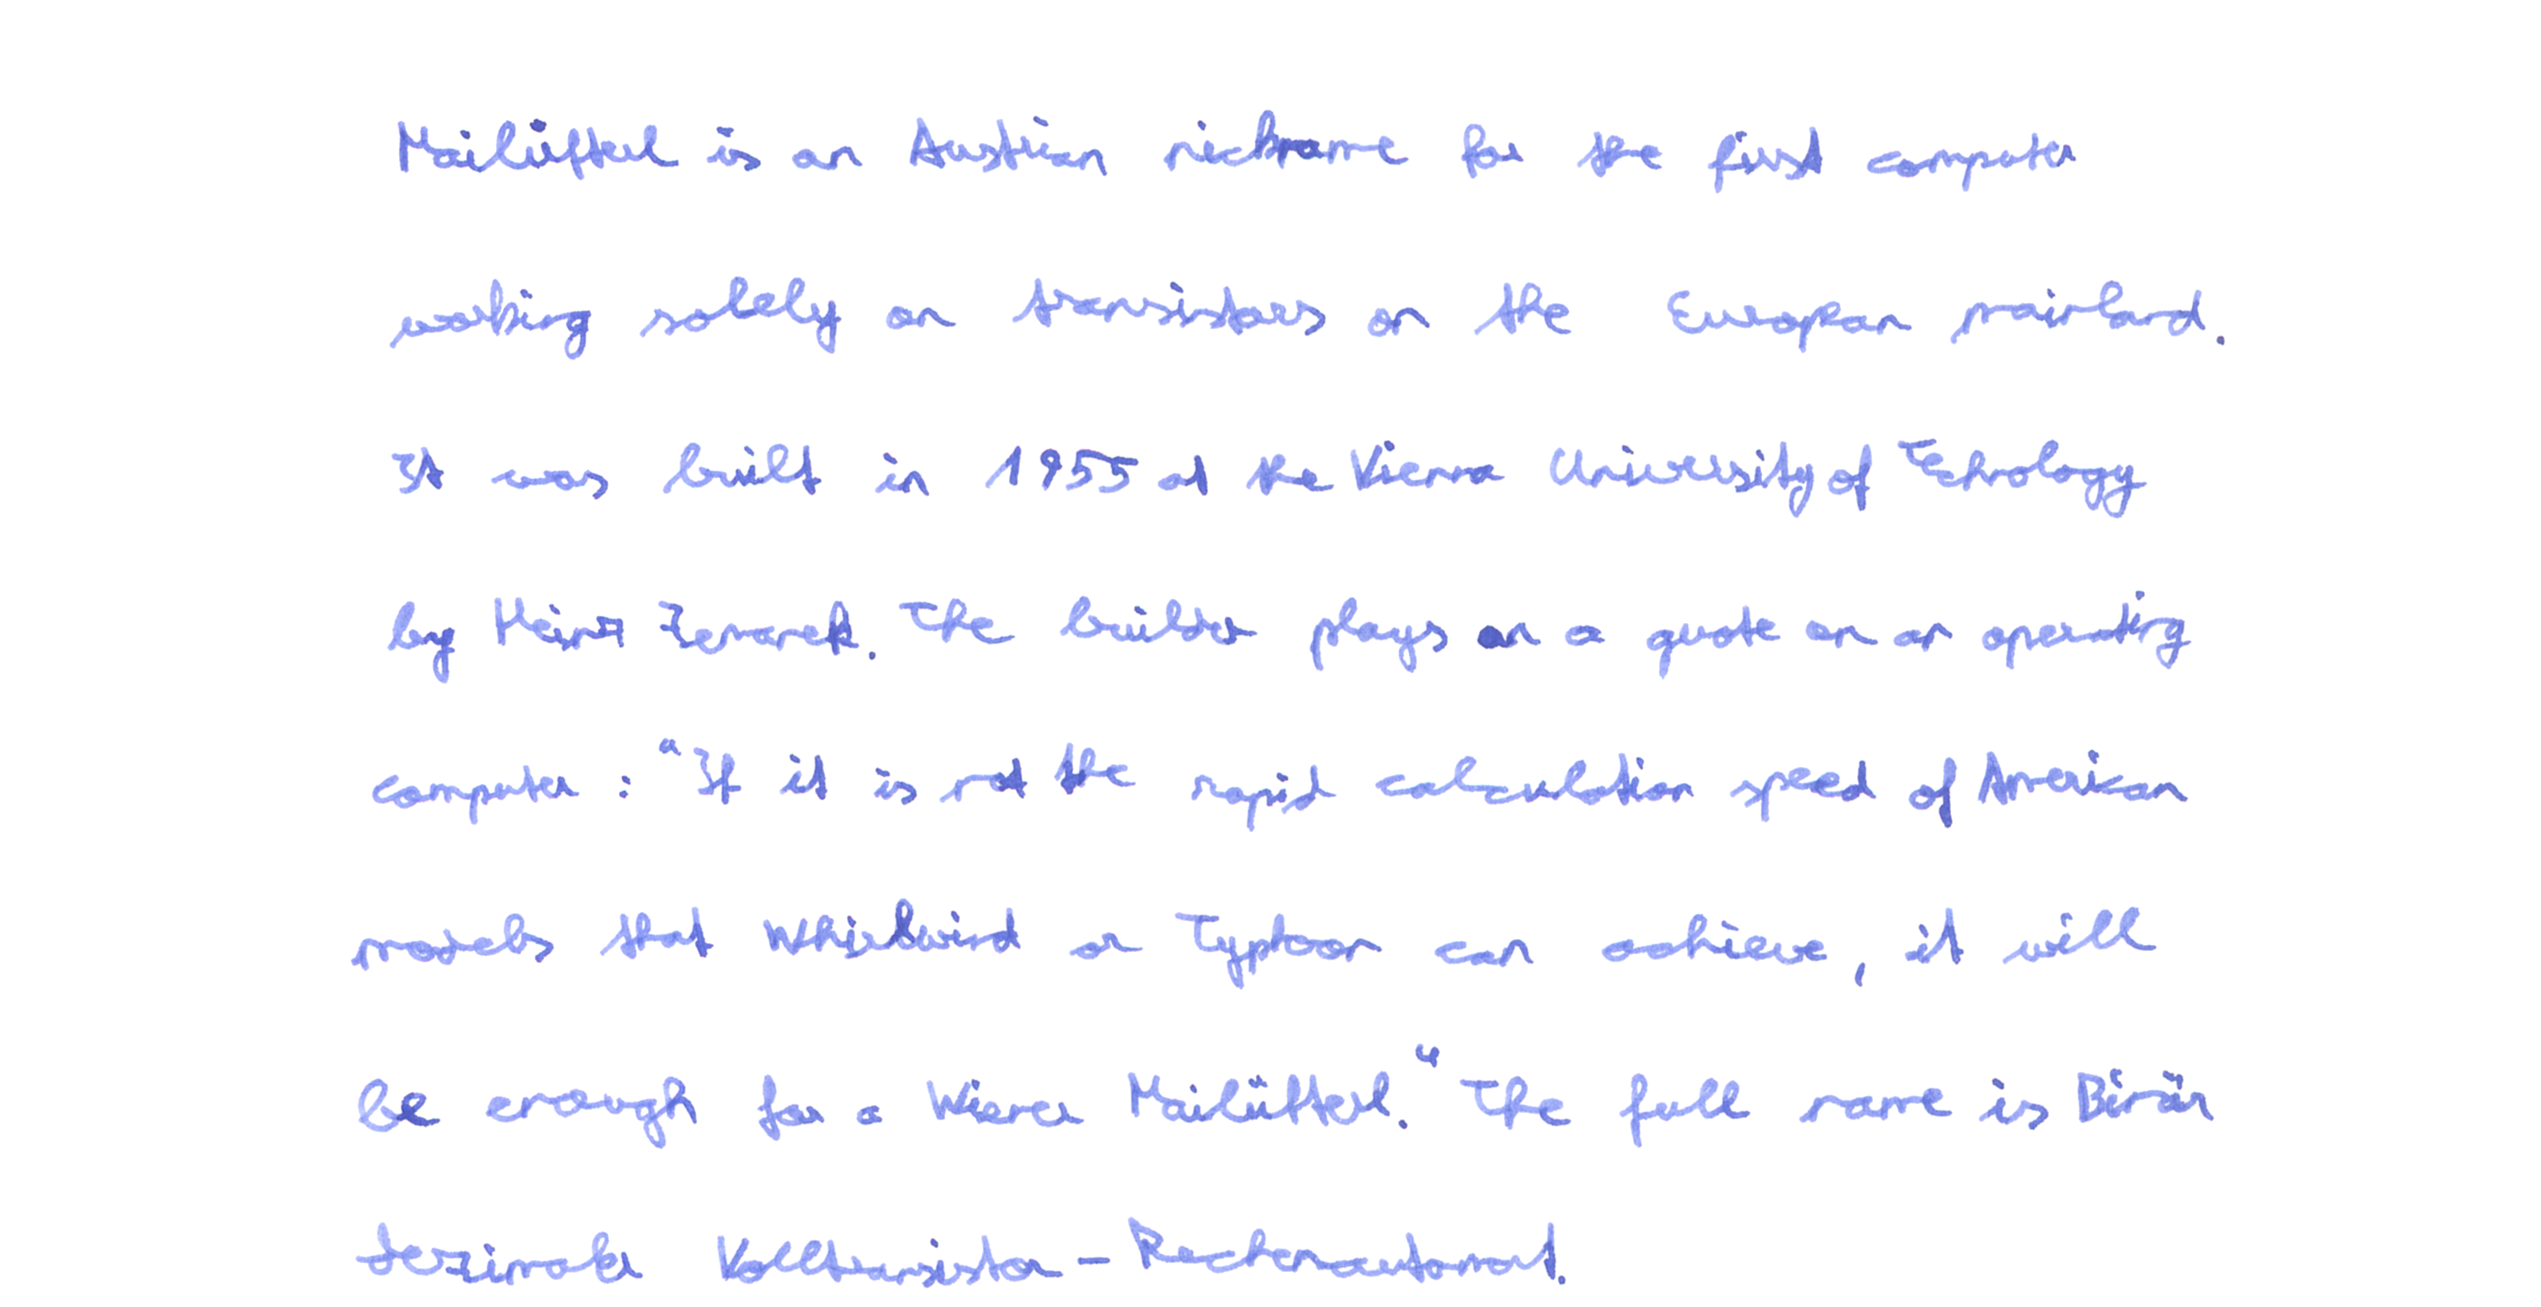 Mailüfterl is an Austrian nickname for the first computer
working solely on transistors on the European mainland.
It was built in 1955 at the Vienna University of Technology
by Heinz Zemanek. The builder plays on a quote on an operating
computer: "If it is not the rapid calculation speed of American
models that Whirlwind or Typhoon can achieve, it will
be enough for a Wiener Mailüfterl." The full name is Binär
dezimaler Volltransistor-Rechenautomat.